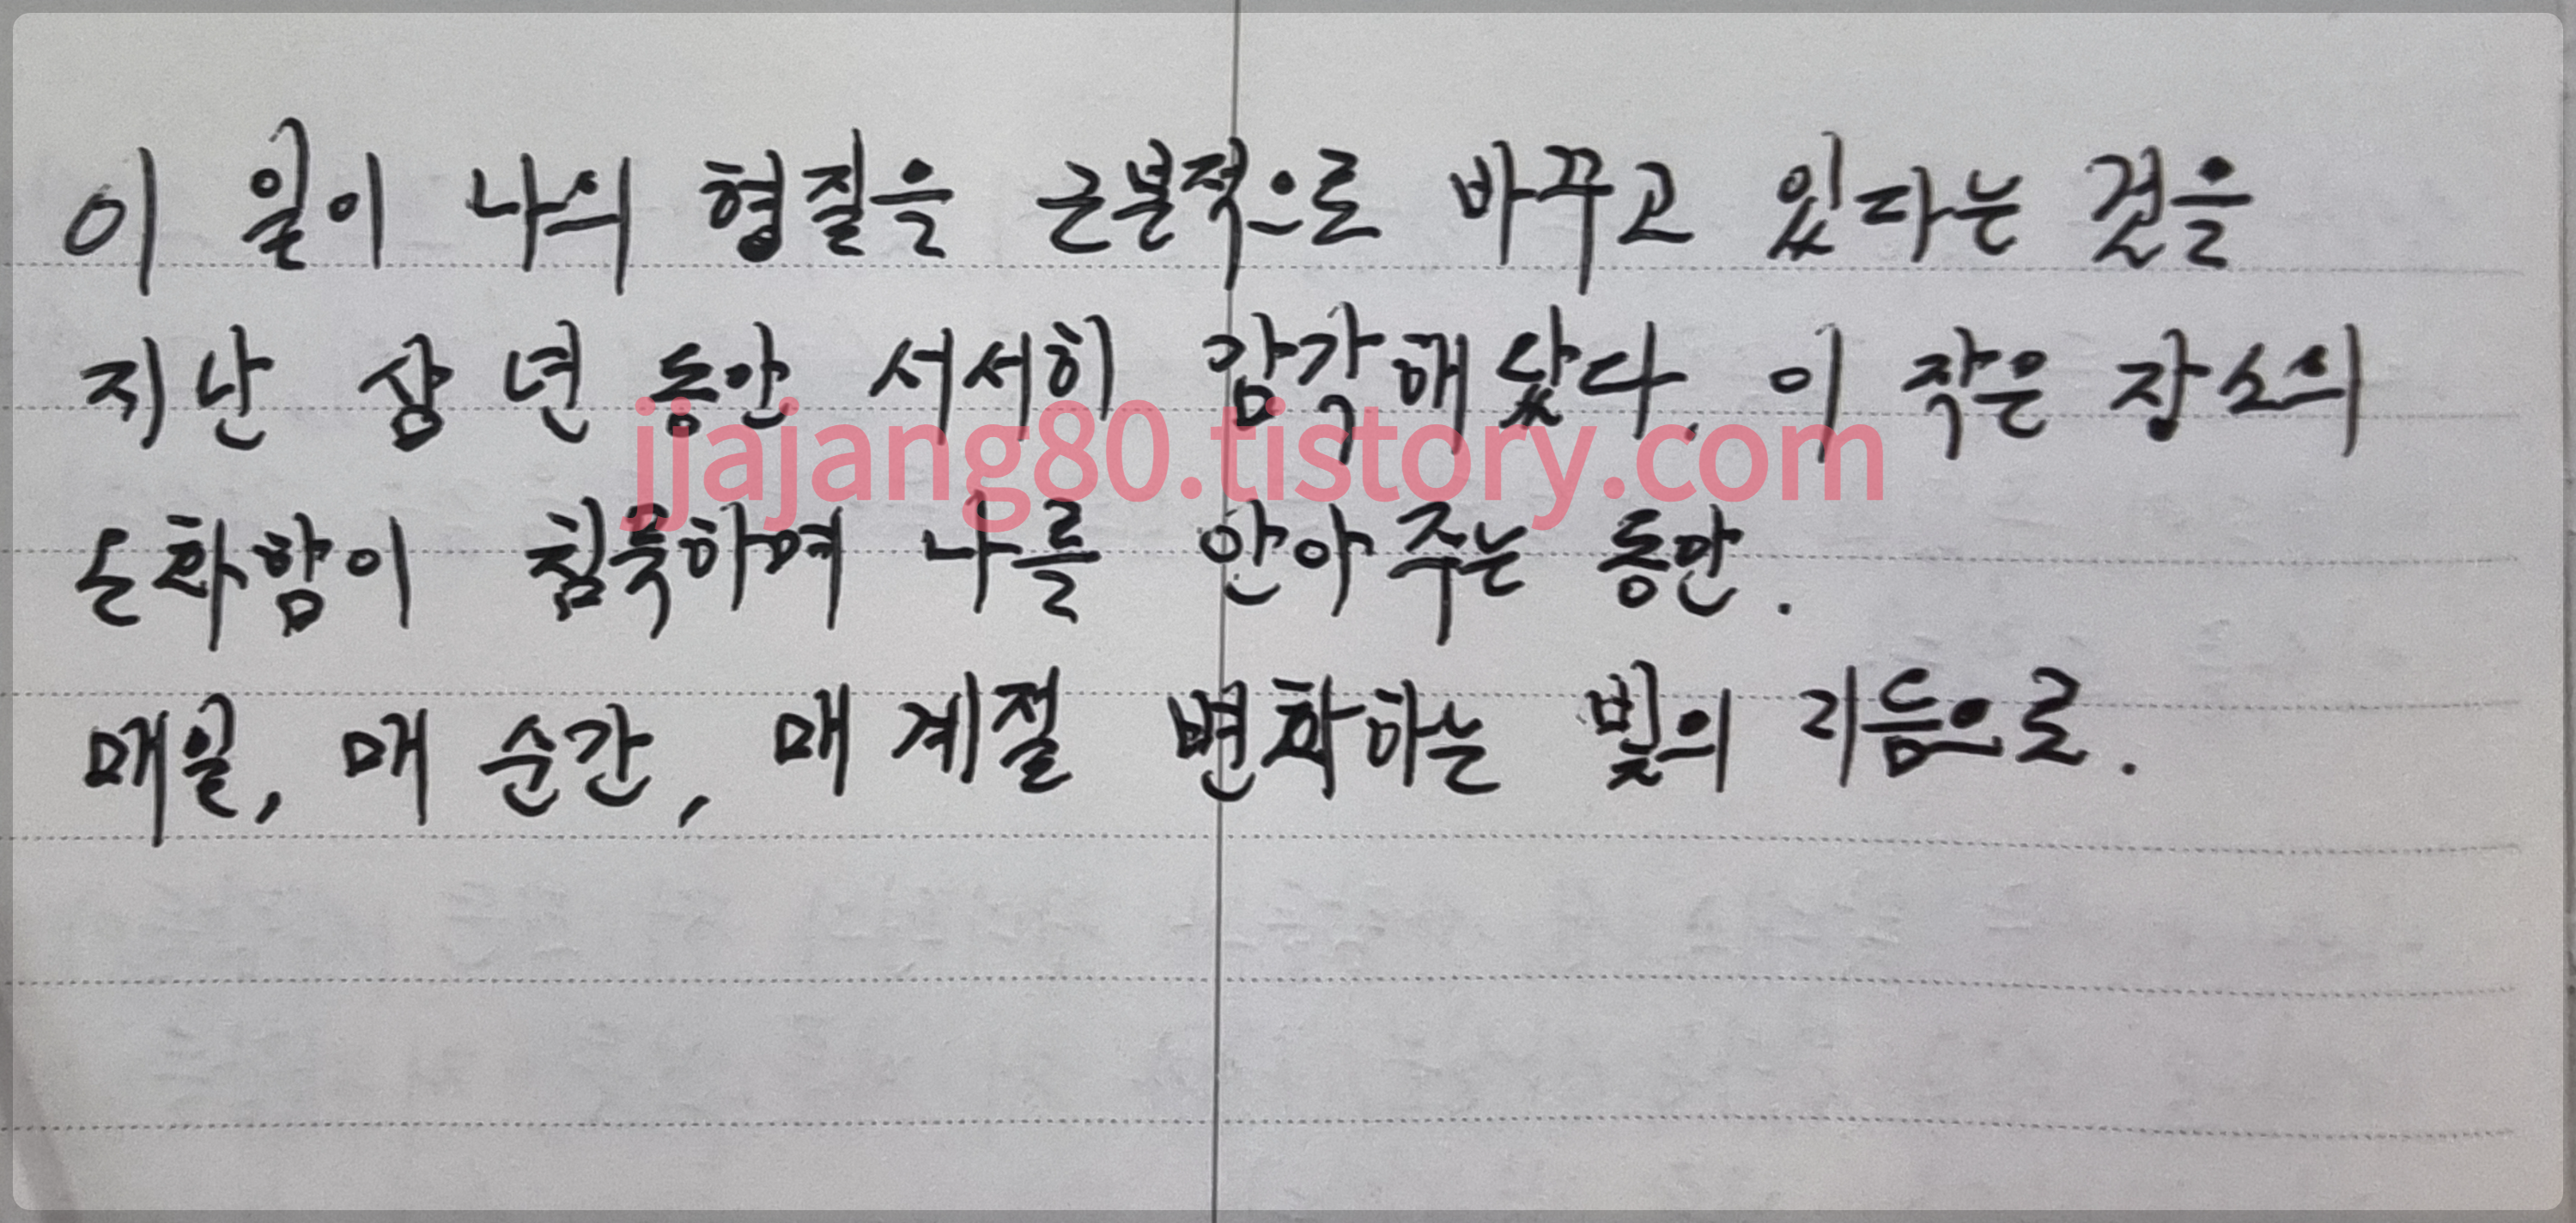 이 일이 나의 형질을 근본적으로 바꾸고 있다는 것을
지난 삼 년 동안 서서히 감각해 왔다. 이 작은 장소의
온화함이 침묵하며 나를 안아 주는 동안.
매일, 매 순간, 매 계절 변화하는 빛의 리듬으로.
jjajang80.tistory.com